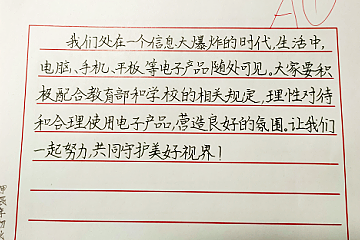 我们处在一个信息大爆炸的时代,生活中,
电脑、手机、平板等电子产品随处可见,大家要积
极配合教育部和学校的相关规定,理性对待
和合理使用电子产品,营造良好的氛围。让我们
一起努力,共同守护美好视界!